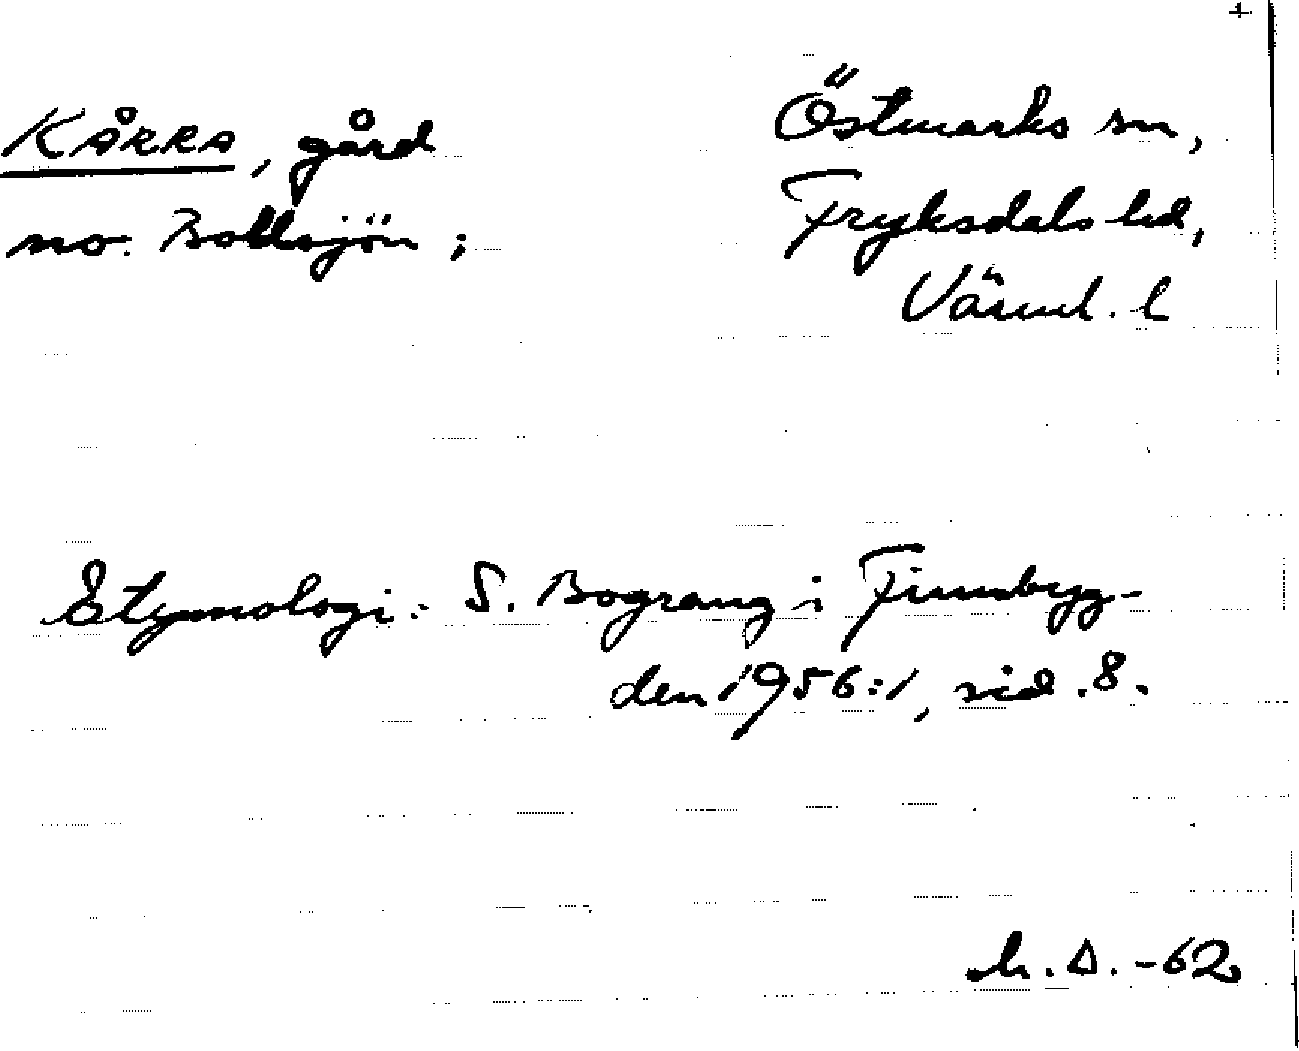 +
KÅRRA, gård
no. Bottsjön ;
Östmarks sn,
Fryksdals hd,
Värml. l
Etymologi: S. Bograng i Finnbyg-
den 1956:1, sid. 8.
-62